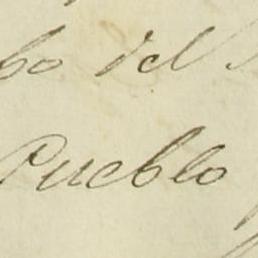 bo del
Pueblo